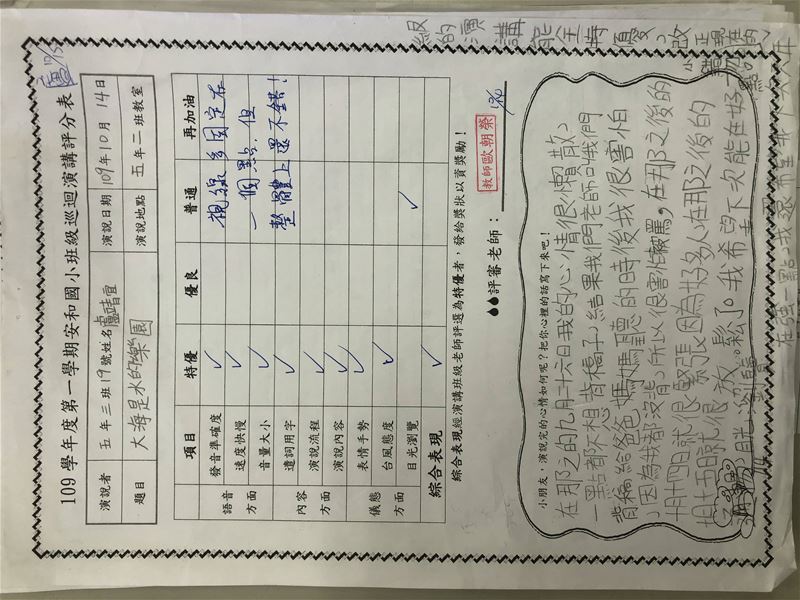 109 學年度第一學期安和國小班級巡迴演講評分表
演說者 五年三班19號姓名盧 演說日期 109年10月14日
題目 大海是水的樂園 演說地點 五年二班教室
項目 特優 優良 普通 再加油
語音方面 發音準確度 ✓
速度快慢 ✓
音量大小 ✓
內容方面 遣詞用字 ✓
演說流程 ✓
演說內容 ✓
儀態方面 表情手勢 ✓
台風態度 ✓
目光瀏覽 ✓
綜合表現 ✓
視線多固定在
一個點,但
整體上還不錯!
綜合表現經演講班級老師評選為特優者,發給獎狀以資獎勵!
評審老師:
教師歐朝榮
小朋友,演說完的心情如何呢?把你心裡的話寫下來吧!
在那之的九月二十六日我的心情很懶散,
一點都不想背稿子,結果我們老師叫我們
背稿給爸爸媽媽聽的時後我很害怕
,因為我都沒背,所以很害怕被罵,在那之後的
十月十四日就很緊張因為好多人,在那之後的
十月十五日就很放鬆了。我希望下次能在好一
級的演講能全拿優,改正
在強一點我還希望我